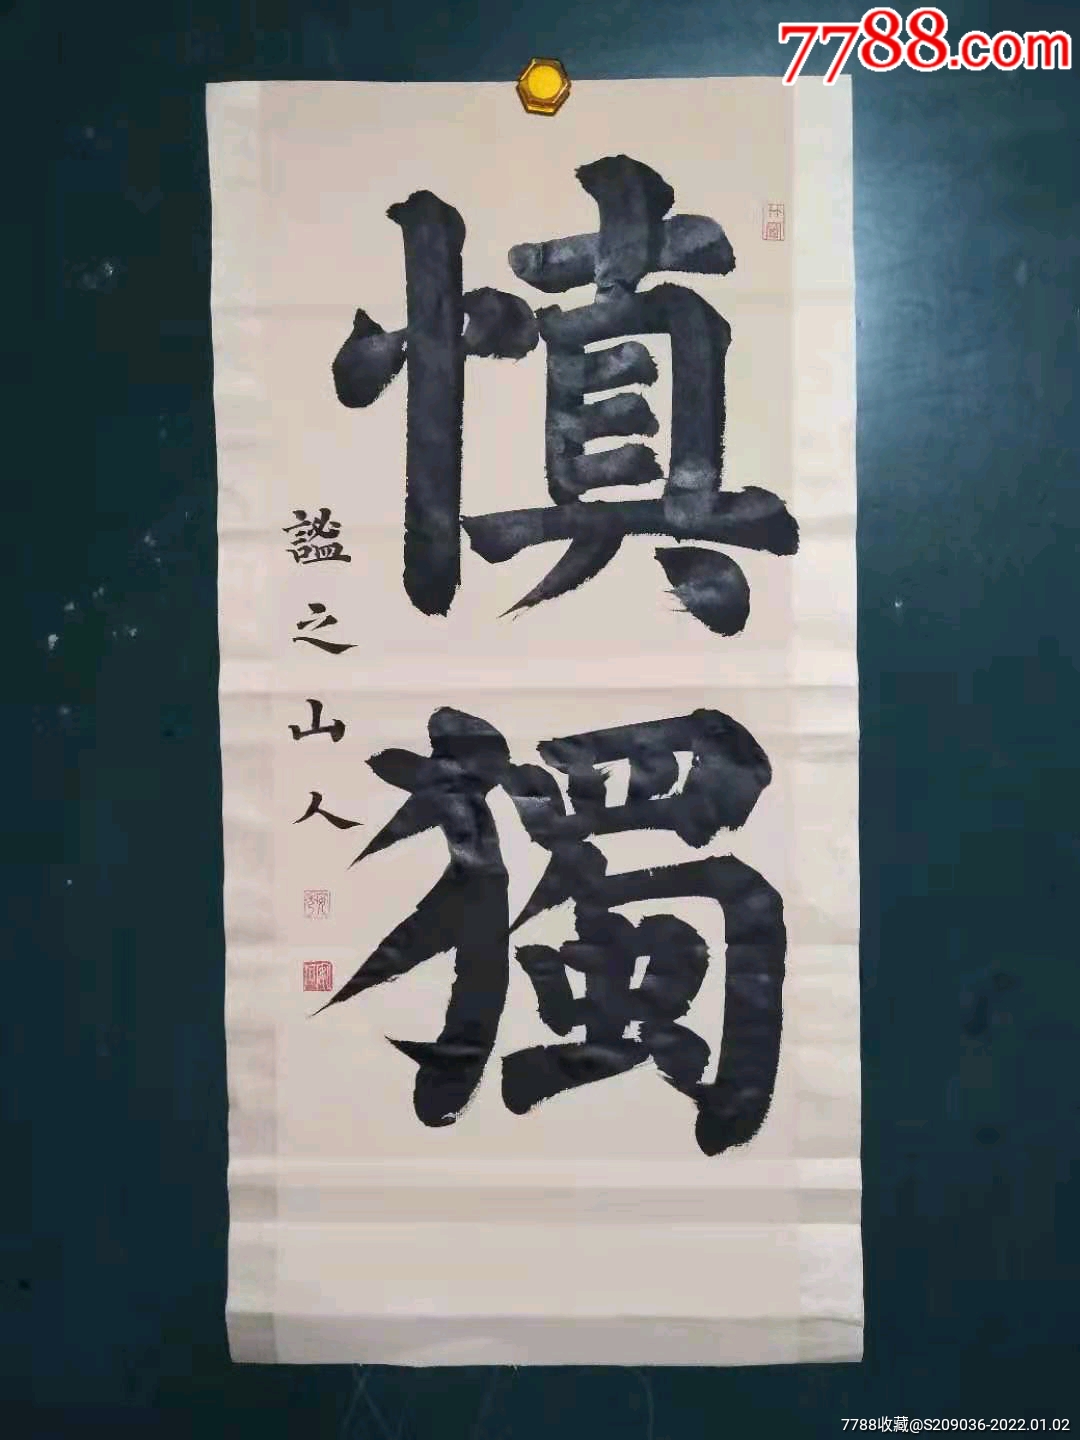 7788.com
慎獨
謐之山人
7788收藏@S209036-2022.01.02